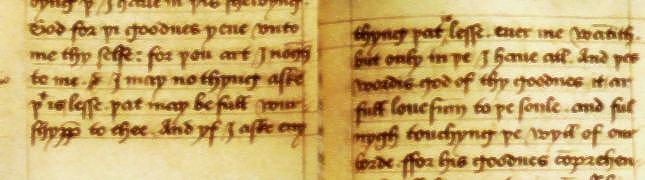 God for þi goodnes ȝeue vnto
me thy selfe: for þou art I nogh
to me & I may no thyng aske
þt is lesse. þat may be full wur
shypp to thee. And yf I aske eny
thyng þat is lesse. euer me wantith.
but only in þe I haue all. And þes
wordis god of thy goodnes it ar
full louesum to þe soule. and ful
nygh touchyng þe wyll of our
lorde. ffor his goodnes cõprehen